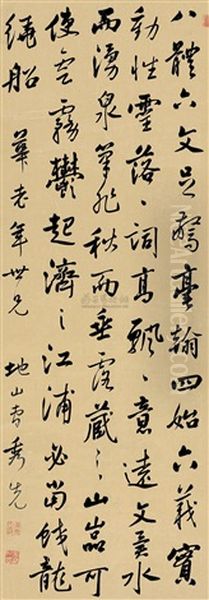 八體六文足驚毫翰四始六義實
動性靈落〻詞高飄〻意遠文異水
而湧泉筆非秋而垂露藏之山嵓可
使雲霧鬱起濟之江浦必當蛟龍
繞船
華老年世兄
地山曹秀先